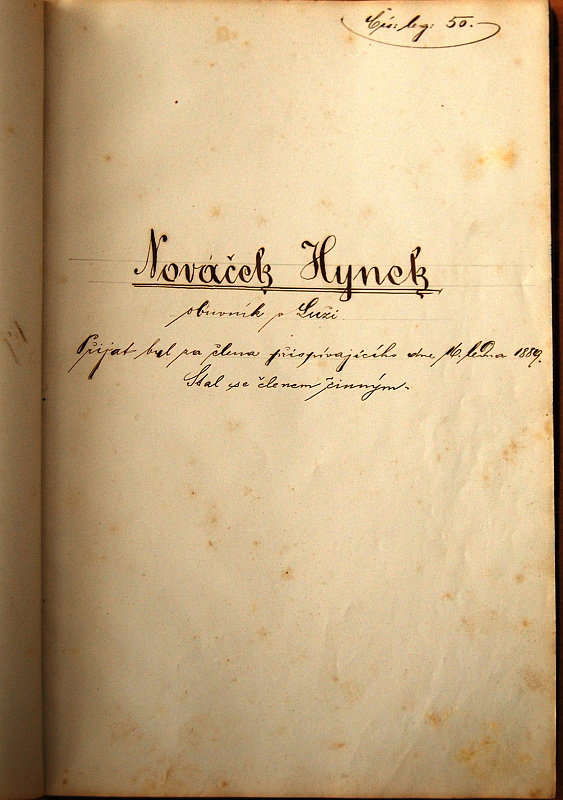 Čís: leg: 50.-
Nováček Hynek
obuvník v Luži
Přijat byl za člena přispívajícího dne 16. ledna 1889.
Stal se členem činným.